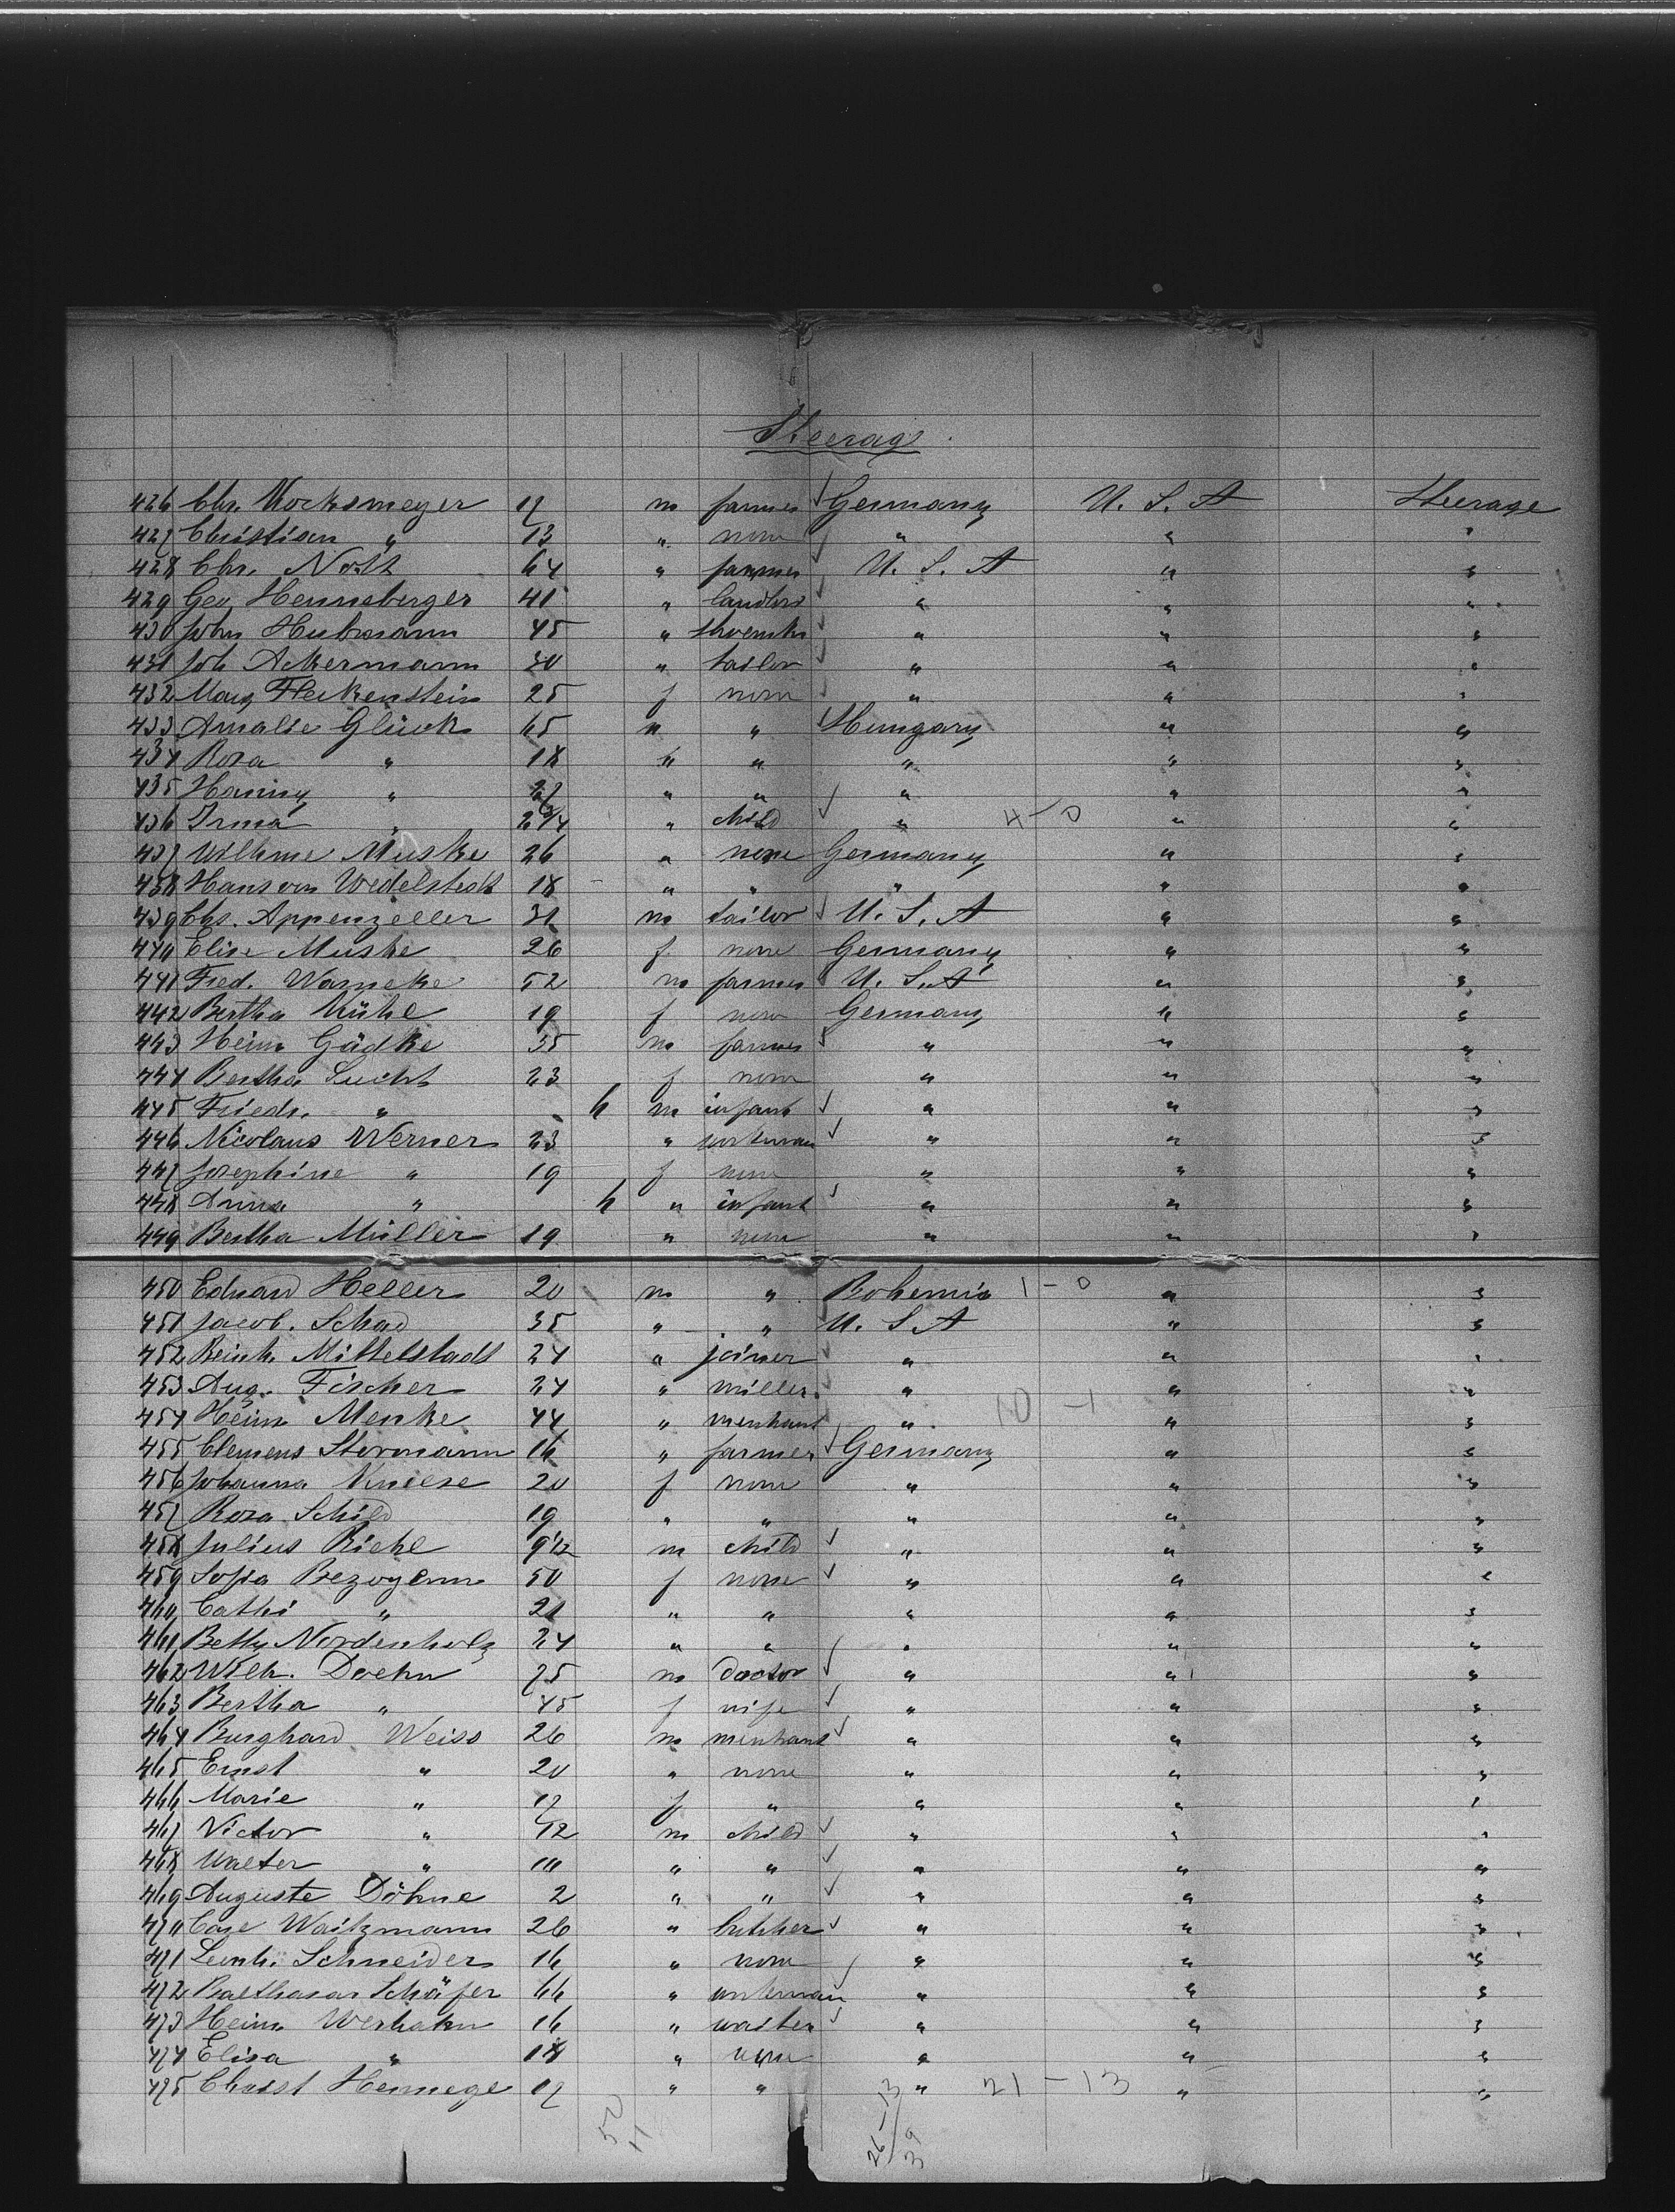 Steerage
426 Chr. Kocksmeyer 17 m farmer Germany U. S. A Steerage
427 Christian " 13 " none " " "
428 Chr. Nolt 64 " farmer U. S. A " "
429 Geo Hennsberger 41 " landlord " " "
430 John Hubmann 45 " " " "
431 Joh Ackermann 30 " tailor " " "
432 Marg Fleckenstein 25 f none " " "
433 Amalie Glück 65 " " Hungary " "
434 Rosa " 18 " " " " "
435 Hanny " " " " " "
436 Irma " 2 3/4 " child " 4-0 " "
437 Wilhme Muske 26 " none Germany " "
438 Hans von Wedelstedt 18 - " " " " "
439 Chs. Appenzeller 31 m tailor U. S. A " "
440 Elise Muske 26 f none Germany " "
441 Fred. Warneke 52 m farmer U. S. A " "
442 Bertha Kühl 19 f none Germany " "
443 Heinr Gädke 35 m farmer " " "
444 Bertha Lucht 23 f none " " "
445 Friedr. " h m infant " " "
446 Nicolaus Werner 23 " workman " " "
447 Josephine " 19 f none " " "
448 Anna " h " infant " " "
449 Bertha Müller 19 " none " " "
450 Eduard Heller 20 m " Bohemia 1-0 " "
451 Jacob. Schad 35 " " U. S. A " "
452 Reinh. Mittelstadt 24 " joiner " " "
453 Aug. Fischer 24 " miller " " "
454 Heinr Menke 44 " merchant " 10-1 " "
455 Clemens Stormann 16 " farmer Germany " "
456 Johanna Kneese 20 f none " " "
457 Rosa Schild 19 " " " " "
458 Julius Riehl 9 1/2 m child " " "
459 Sofia Bezogenn 50 f none " " "
460 Cathi " 21 " " " " "
461 Betty Nordenholz 24 " " " " "
462 Wilh. Doehn 75 m doctor " " "
463 Bertha " 45 f wife " " "
464 Burghard Weiss 26 m merchant " " "
465 Ernst " 20 " none " " "
466 Marie " 17 f " " " "
467 Victor " 12 m child " " "
468 Walter " 10 " " " " "
469 Auguste Döhne 2 " " " " "
470 Carl Waitzmann 26 " butcher " " "
471 Leonh. Schneider 16 " none " " "
472 Balthasar Schäfer 66 " workman " " "
473 Heinr Werhahn 16 " waiter " " "
474 Elisa " 18 " none " " "
475 Christ Hennege 17 " " " 21-13 " "
50
11
26-13
39